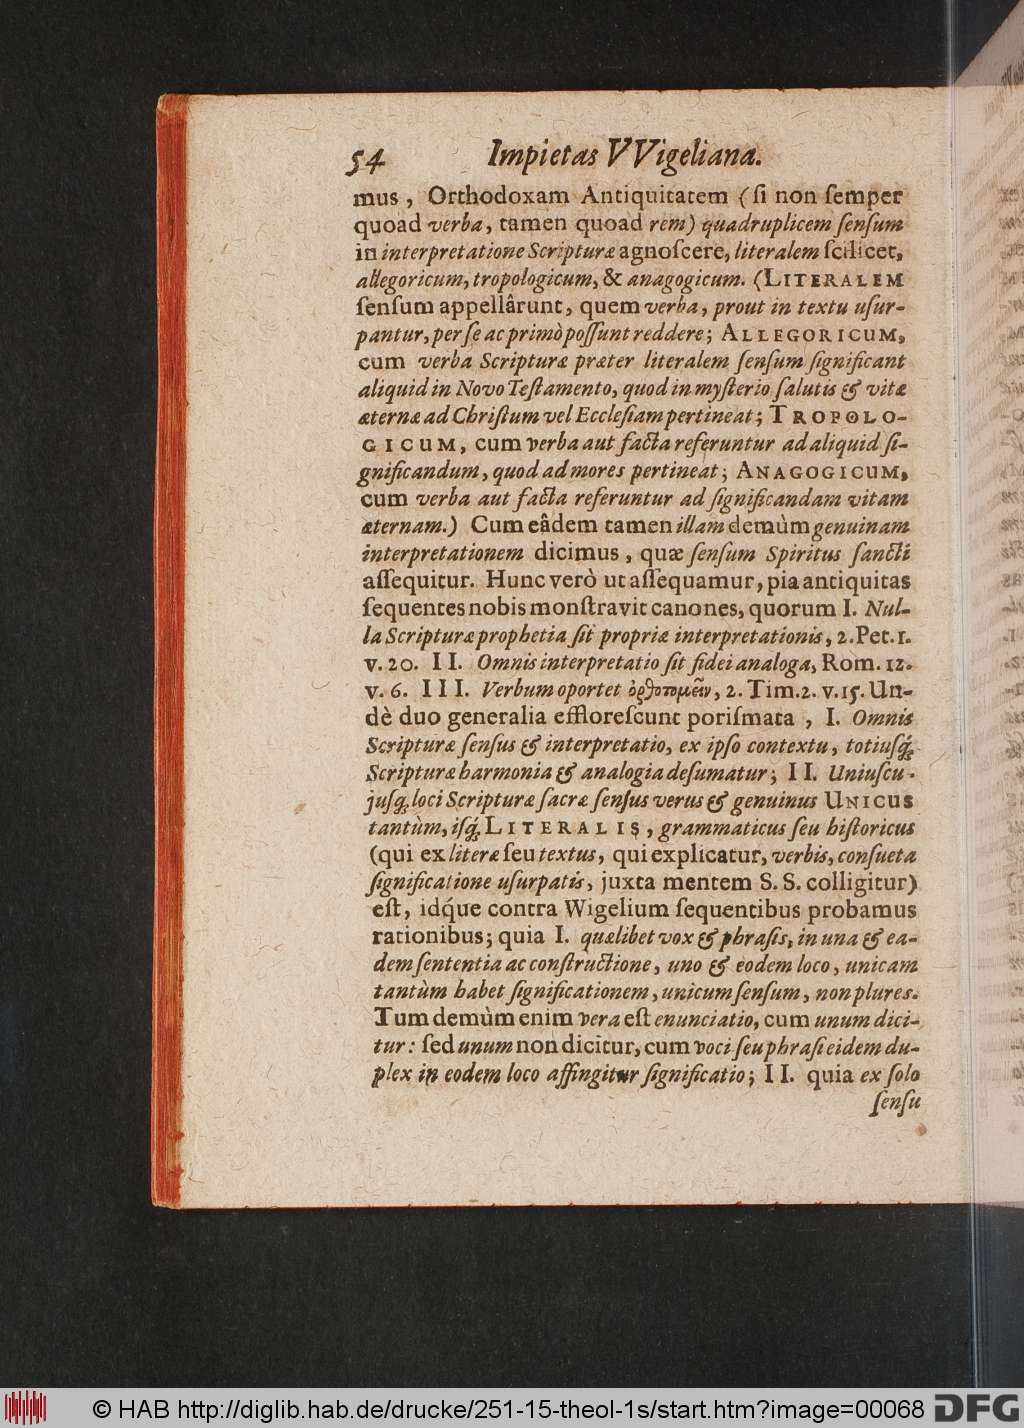 54 Impietas VVigeliana.
mus, Orthodoxam Antiquitatem (ſi non ſemper
quoad verba, tamen quoad rem) quadruplicem ſenſum
in interpretatione Scripturæ agnoſcere, literalem ſcilicet,
allegoricum, tropologicum, & anagogicum. (LITERALEM
ſenſum appellârunt, quem verba, prout in textu uſur-
pantur, per ſe ac primò poſſunt reddere; ALLEGORICUM,
cum verba Scripturæ præter literalem ſenſum ſignificant
aliquid in Novo Teſtamento, quod in myſterio ſalutis & vitæ
æternæ ad Chriſtum vel Eccleſiam pertineat; TROPOLO-
GICUM, cum verba aut facta referuntur ad aliquid ſi-
gnificandum, quod ad mores pertineat; ANAGOGICUM,
cum verba aut facta referuntur ad ſignificandam vitam
æternam.) Cum eâdem tamen illam demùm genuinam
interpretationem dicimus, quæ ſenſum Spiritus ſancti
aſſequitur. Hunc verò ut aſſequamur, pia antiquitas
ſequentes nobis monſtravit canones, quorum I. Nul-
la Scripturæ prophetia ſit propriæ interpretationis, 2. Pet. 1.
v. 20. II. Omnis interpretatio ſit fidei analoga, Rom. 12.
v. 6. III. Verbum oportet ὀρθοτομεῖν, 2. Tim. 2. v. 15. Un-
dè duo generalia effloreſcunt poriſmata, I. Omnis
Scripturæ ſenſus & interpretatio, ex ipſo contextu, totiuſq́;
Scripturæ harmonia & analogia deſumatur; II. Uniuſcu-
juſq; loci Scripturæ ſacræ ſenſus verus & genuinus UNICUS
tantùm, iſq́; LITERALIS, grammaticus ſeu hiſtoricus
(qui ex literæ ſeu textus, qui explicatur, verbis, conſueta
ſignificatione uſurpatis, juxta mentem S. S. colligitur)
eſt, idq́ue contra Wigelium ſequentibus probamus
rationibus; quia I. quælibet vox & phraſis, in una & ea-
dem ſententia ac conſtructione, uno & eodem loco, unicam
tantùm habet ſignificationem, unicum ſenſum, non plures.
Tum demùm enim vera eſt enunciatio, cum unum dici-
tur: ſed unum non dicitur, cum voci ſeu phraſi eidem du-
plex in eodem loco affingitur ſignificatio; II. quia ex ſolo
ſenſu
© HAB http://diglib.hab.de/drucke/251-15-theol-1s/start.htm?image=00068
DFG